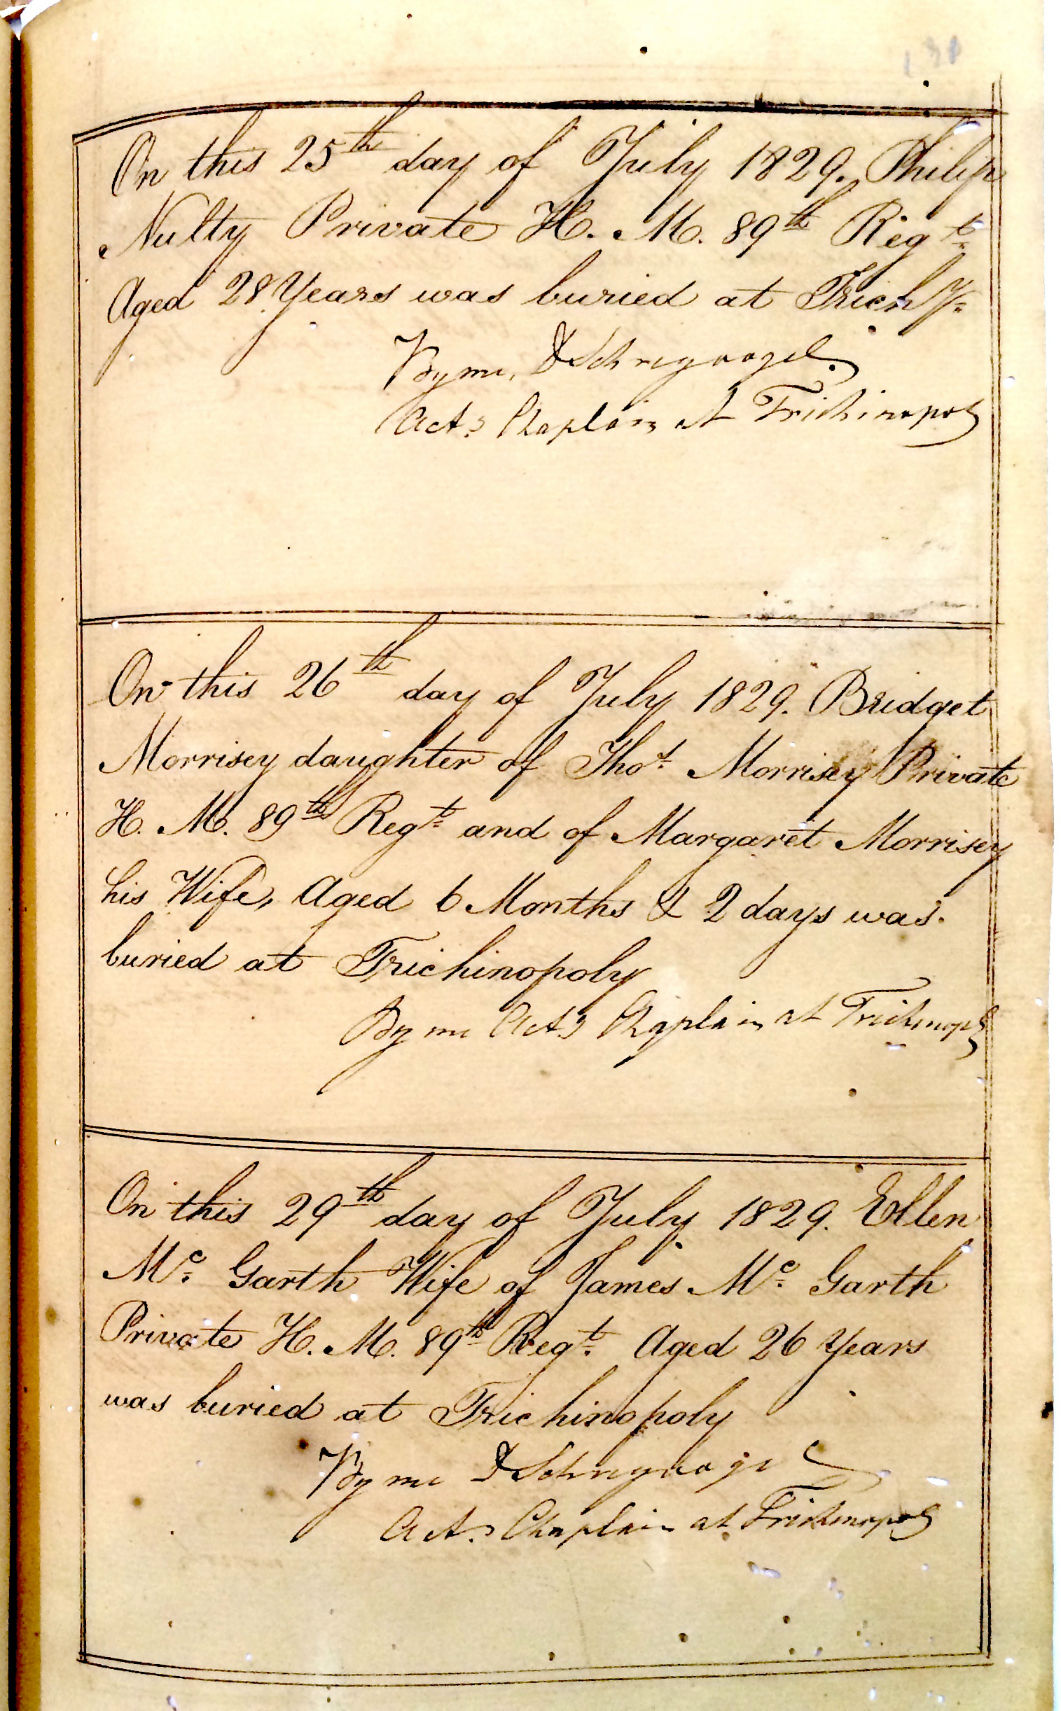 On this 25th day of July 1829. Philip
Nulty Private H. M. 89th Regt.
Aged 28 Years was buried at Trichy.
By me, D Schreyvogel.
Actg Chaplain at Trichinopoly
On this 26th day of July 1829. Bridget
Morrisey daughter of Thos. Morrisey Private
H. M. 89th Regt. and of Margaret Morrisey
his Wife, Aged 6 Months & 2 days was
buried at Trichinopoly
By me Actg Chaplain at Trichinopoly
On this 29th day of July 1829. Ellen
Mc. Garth Wife of James Mc. Garth
Private H. M. 89th Regt. Aged 26 Years
was buried at Trichinopoly
By me D Schreyvogel
Actg Chaplain at Trichinopoly